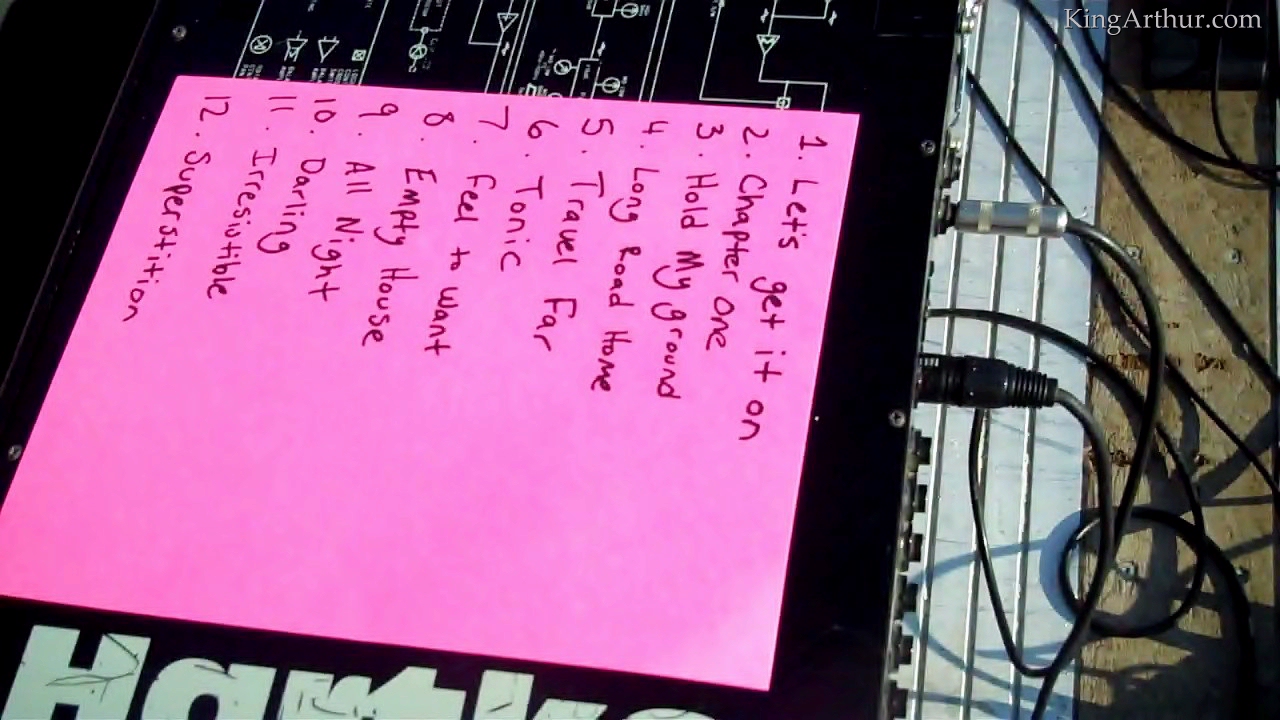 KingArthur.com
1. Let's get it on
2. Chapter One
3. Hold My ground
4. Long Road Home
5. Travel Far
6. Tonic
7. Feel to want
8. Empty House
9. All Night
10. Darling
11. Irresisitible
12. Superstition
Hartke